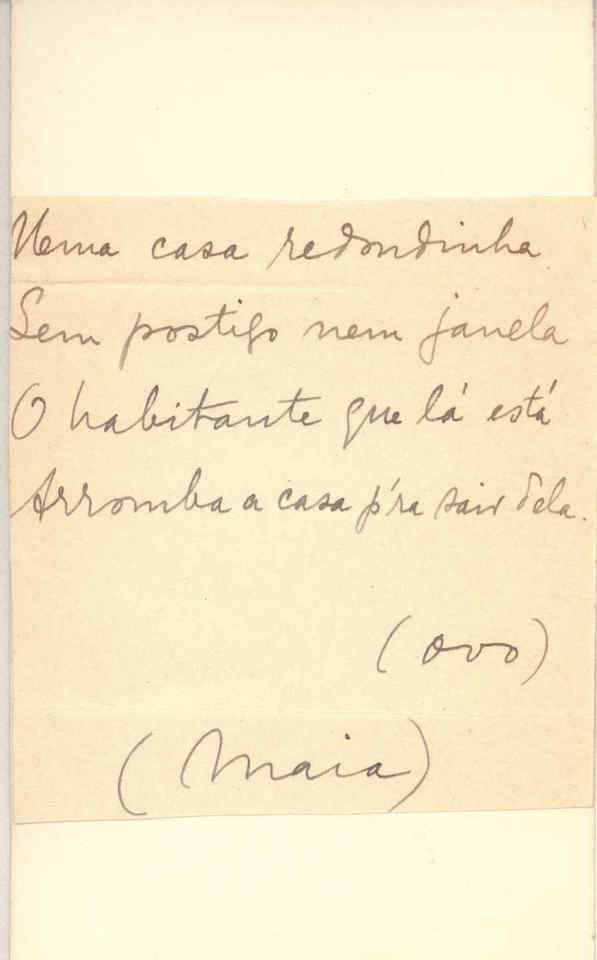 Numa casa redondinha
Sem postigo nem janela
O habitante que lá está
Arromba a casa p'ra sair dela.
(ovo)
(Maia)